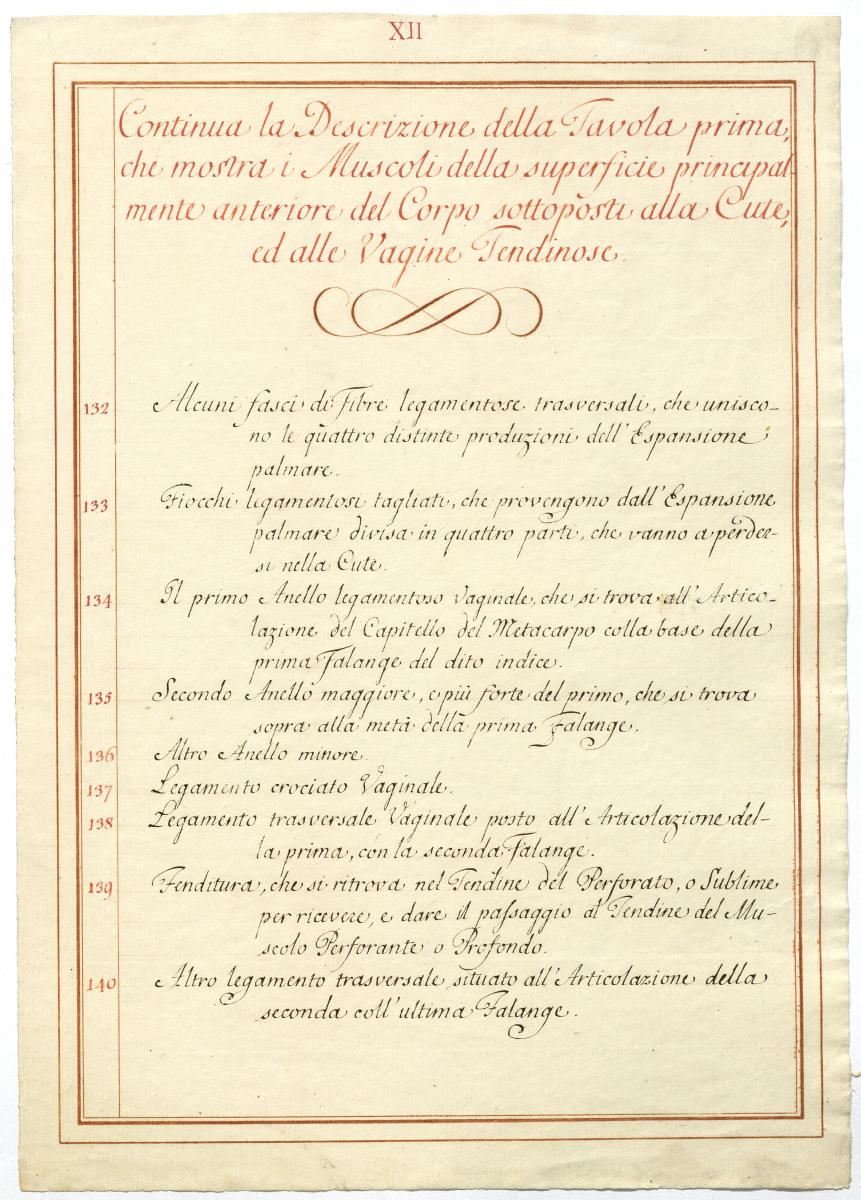 XII
Continua la Descrizione della Tavola prima,
che mostra i Muscoli della superficie principal-
mente anteriore del Corpo sottoposti alla Cute,
ed alle Vagine Tendinose.
132 Alcuni fasci di Fibre legamentose trasversali, che unisco-
no le quattro distinte produzioni dell'Espansione
palmare.
133 Fiocchi legamentosi tagliati, che provengono dall'Espansione
palmare divisa in quattro parti, che vanno a perder-
si nella Cute.
134 Il primo Anello legamentoso vaginale, che si trova all'Artico-
lazione del Capitello del Metacarpo colla base della
prima Falange del dito indice.
135 Secondo Anello maggiore, e più forte del primo, che si trova
sopra alla metà della prima Falange.
136 Altro Anello minore.
137 Legamento crociato Vaginale.
138 Legamento trasversale Vaginale posto all'Articolazione del-
la prima, con la seconda Falange.
139 Fenditura, che si ritrova nel Tendine del Perforato, o Sublime
per ricevere, e dare il passaggio al Tendine del Mu-
scolo Perforante o Profondo.
140 Altro legamento trasversale situato all'Articolazione della
seconda coll'ultima Falange.